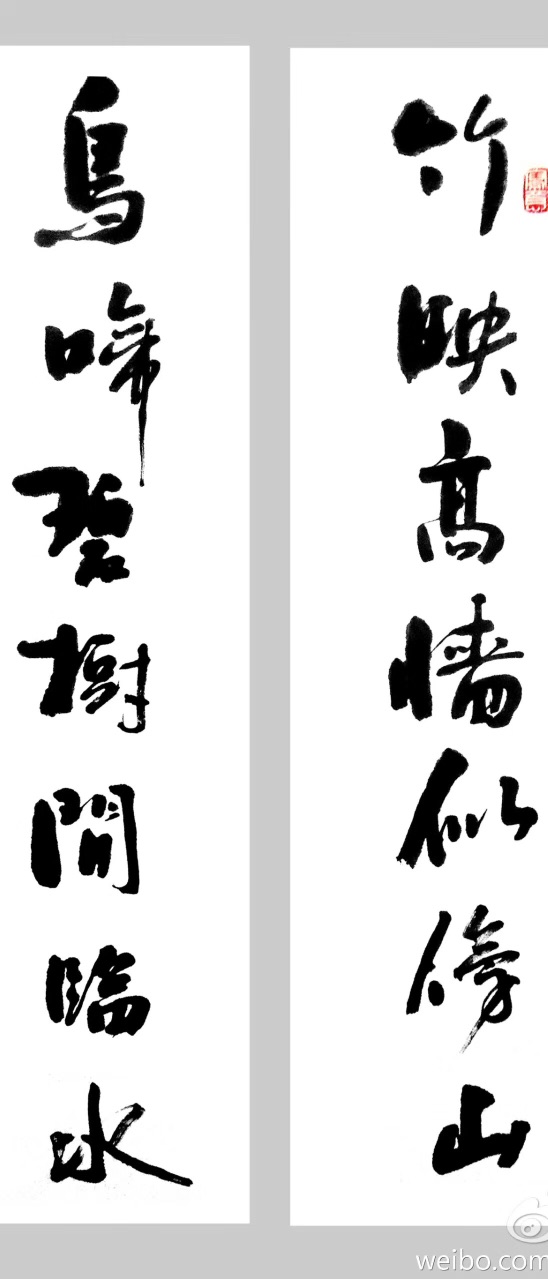 竹映高墻似傍山
鳥啼碧樹閒臨水
weibo.com